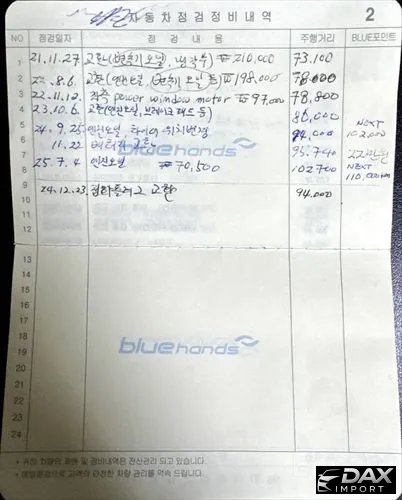 자동차점검정비내역 2
NO 점검일자 점 검 내 용 주행거리 BLUE포인트
1 21.11.27 교환(변속기오일, 냉각수) ₩ 210,000 73.100
2 22.8.6 교환(엔진오일, 변속기오일 등) ₩ 198,000 78000
3 22.11.12 좌측 power window motor ₩ 97,000 78,800
4 23.10.6 교환(엔진오일, 브레이크패드 등) 86,000
5 24.9.25 엔진오일, 타이어 위치변경 94,000 NEXT 102,000
6 11.22 배터리 교환 95.740
7 25.7.4 엔진오일 ₩70,500 102700 NEXT
8 110,000
9 24.12.23 점화플러그 교환 94.000
10
11
12
bluehands
13
14
15
16
17
18
19
20
21
22
23
24
bluehands
• 귀하 차량의 판매 및 정비내역은 전산관리 되고 있습니다.
• 예방점검으로 고객의 안전한 차량 관리를 약속 드립니다.
DAX
IMPORT